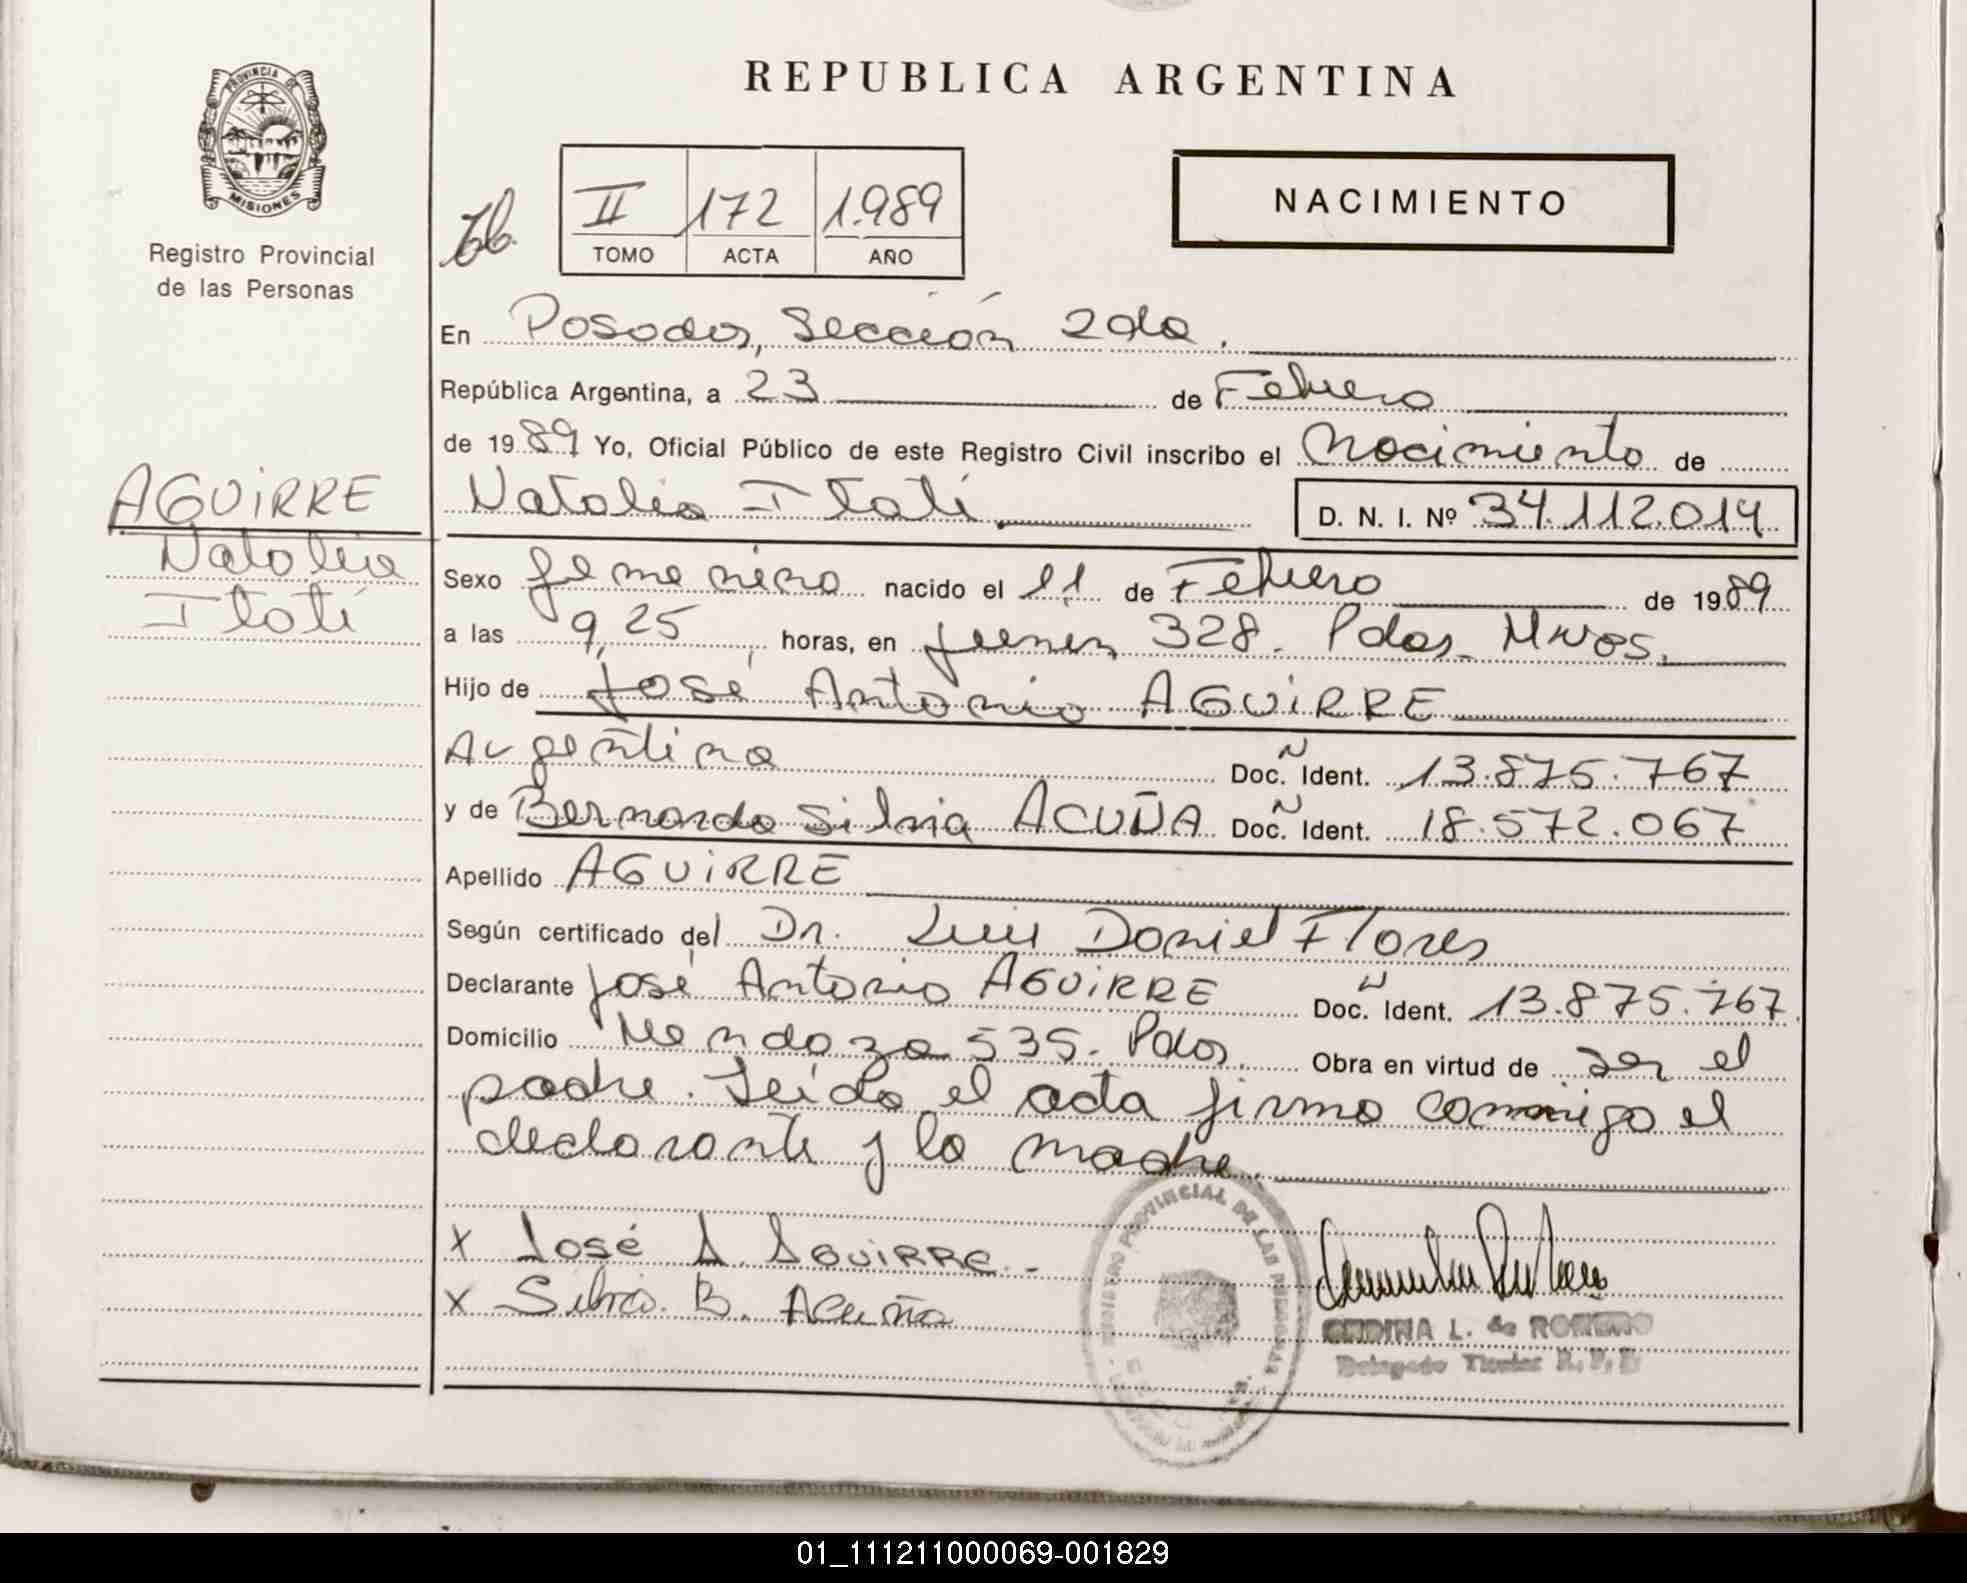 REPUBLICA ARGENTINA
PROVINCIA DE
MISIONES
Registro Provincial
de las Personas
II 172 1.989
TOMO ACTA AÑO
NACIMIENTO
En Posadas, Sección 2da.
República Argentina, a 23 de Febrero
de 1989 Yo, Oficial Público de este Registro Civil inscribo el Nacimiento de
Natalia Itatí D. N. I. Nº 34.112.014
AGUIRRE
Natalia
Itatí
Sexo femenino nacido el 11 de Febrero de 1989
a las 9,25 horas, en Junín 328. Pdas. Mnes.
Hijo de José Antonio AGUIRRE
Argentina Doc. Ident. 13.875.767
y de Bernarda Silvia ACUÑA Doc. Ident. 18.572.067
Apellido AGUIRRE
Según certificado del Dr. Luis Daniel Flores
Declarante José Antonio AGUIRRE Doc. Ident. 13.875.767
Domicilio Mendoza 535. Pdas. Obra en virtud de ser el
padre. Leída el acta firma conmigo el
declarante y la madre.
x José A. Aguirre.-
x Silvia. B. Acuña
REGISTRO PROVINCIAL DE LAS PERSONAS
L. de ROMERO
Delegado Titular R. P. P.
01_111211000069-001829